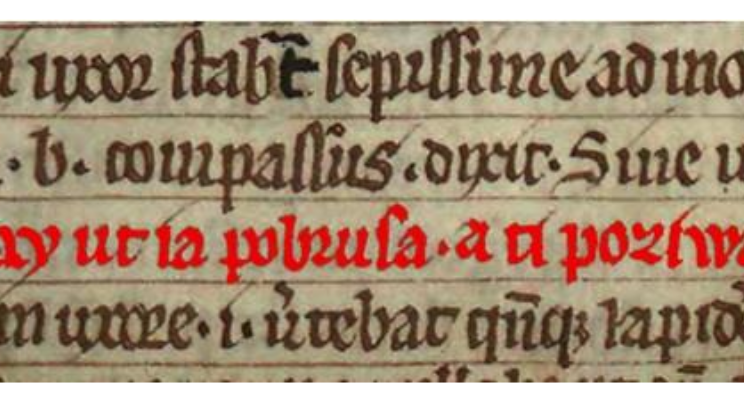 i uxor stab̄t sepissime ad mo
·b· compassus·dixit·Sine u
ay ut ia pobrusa·a ti poziwa
m uxore·i· u̓tebat qn̄qꝫ lapid